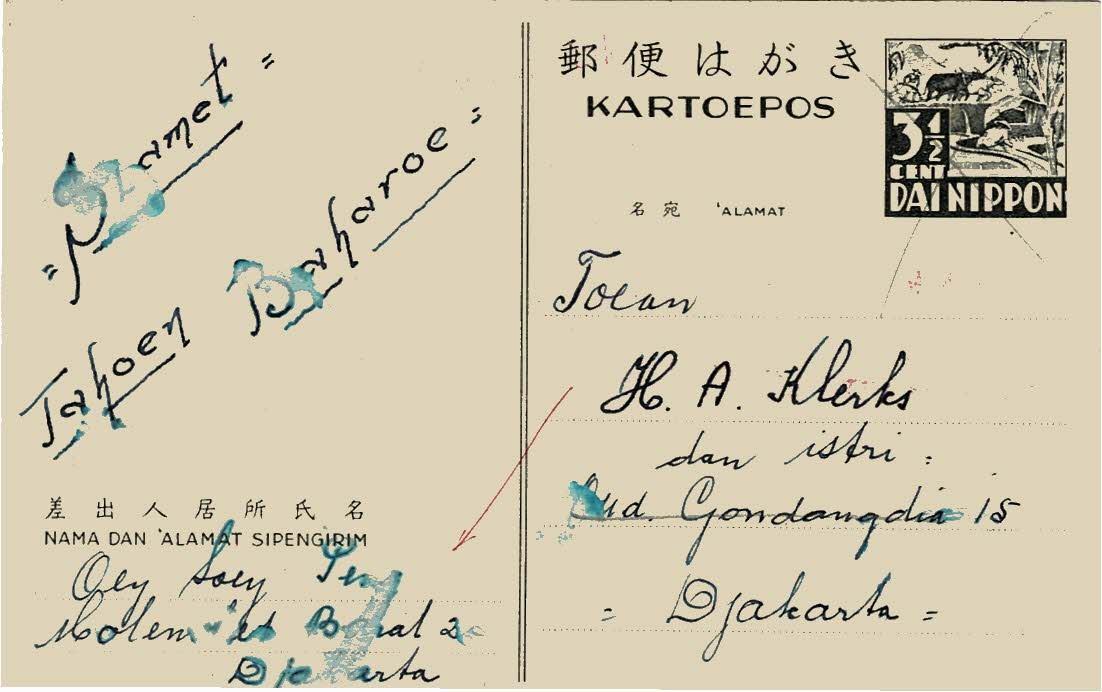 "Slamet"
Tahoen Baharoe =
差出人居所氏名
NAMA DAN 'ALAMAT SIPENGIRIM
Oey Soey
Djakarta
郵便はがき
KARTOEPOS
3 1/2
CENT
DAI NIPPON
名宛 'ALAMAT
Toean
H. A. Klerks
dan istri :
Oud. Gondangdia 15
= Djakarta =